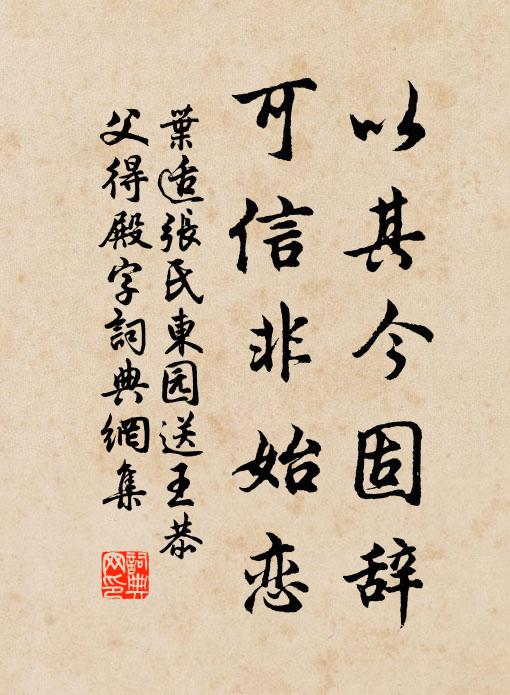 以其今固辞
可信非始恋
葉适張氏東园送王恭
父得殿字詞典網集
詞典网印